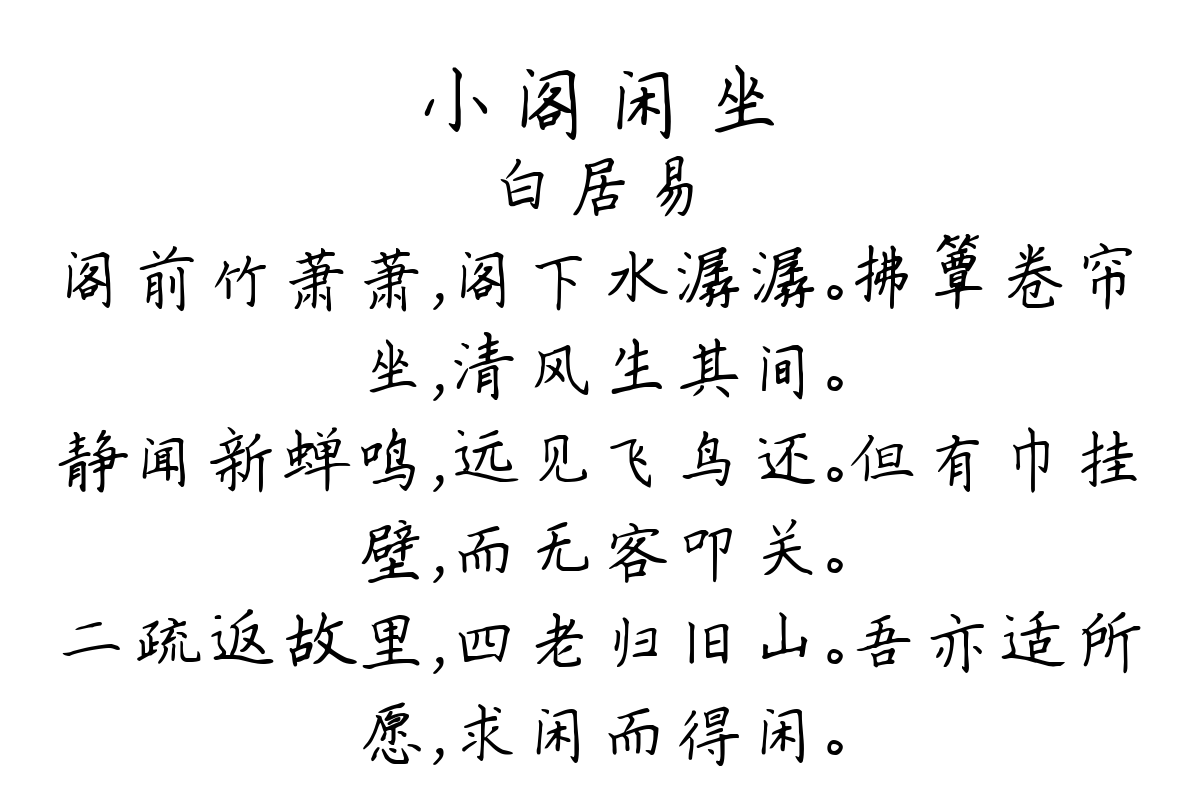 小阁闲坐
白居易
阁前竹萧萧,阁下水潺潺。拂簟卷帘
坐,清风生其间。
静闻新蝉鸣,远见飞鸟还。但有巾挂
壁,而无客叩关。
二疏返故里,四老归旧山。吾亦适所
愿,求闲而得闲。